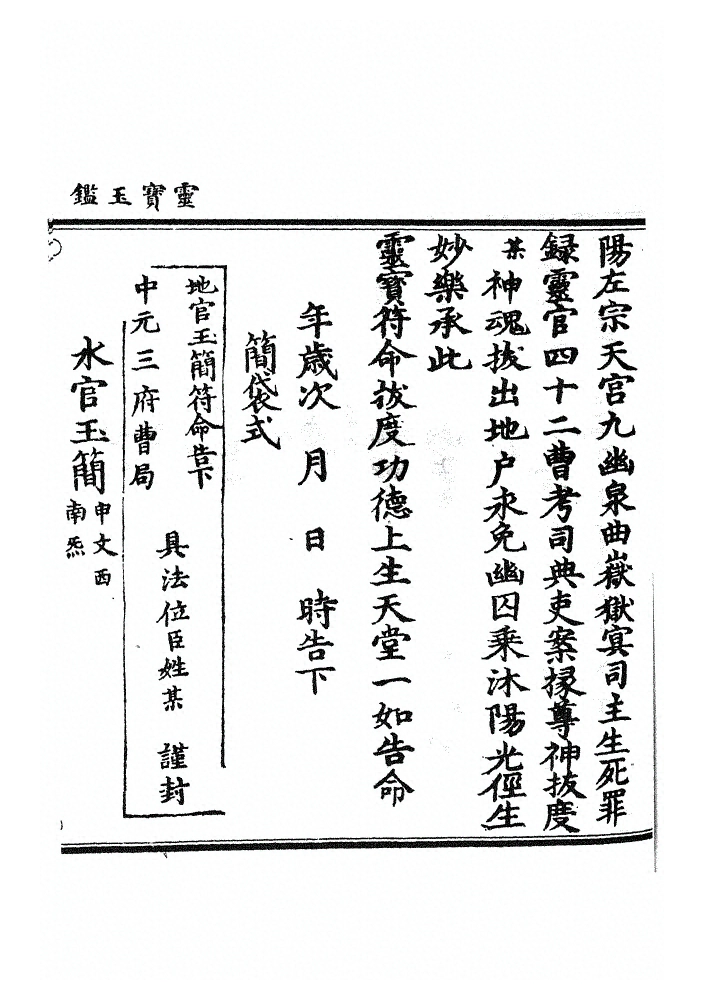 靈寶玉鑑
陽左宗天官九幽泉曲嶽獄㝠司主生死罪
録靈官四十二曹考司典吏案掾尊神拔度
某神魂拔出地户永免幽囚乘沐陽光徑生
妙樂承此
靈寶符命拔度功德上生天堂一如告命
年歲次 月 日 時告下
簡袋式
地官玉簡符命告下
中元三府曹局
具法位臣姓某 謹封
水官玉簡
申文西
南炁